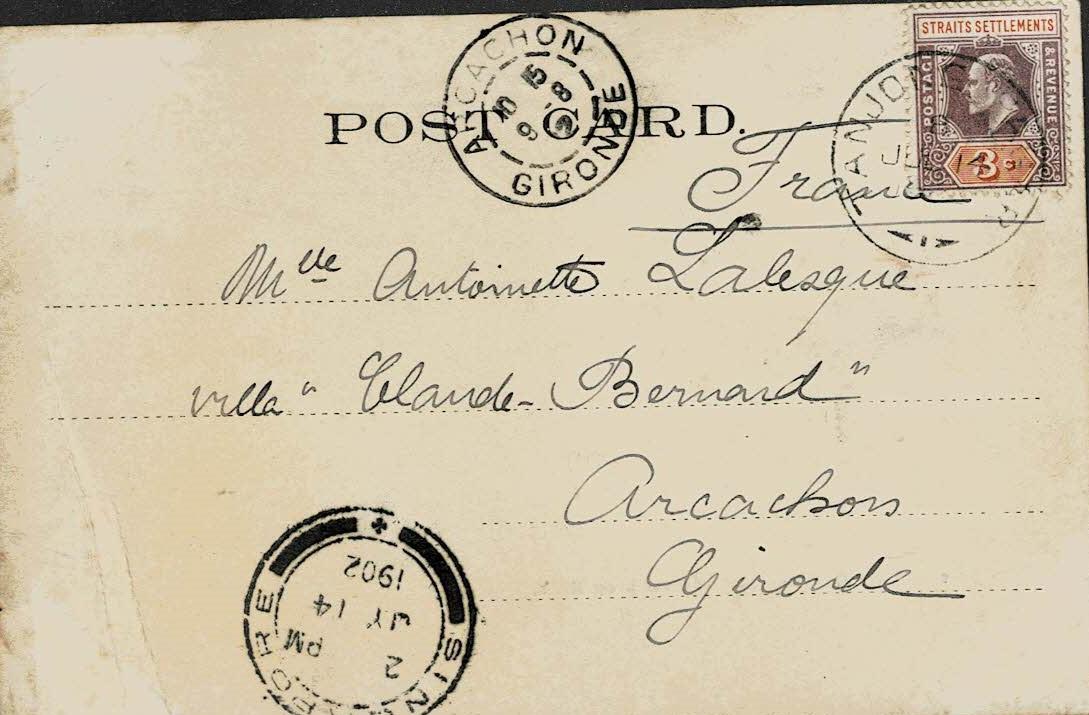 STRAITS SETTLEMENTS
POSTAGE & REVENUE
3c
ARCACHON
10 15
9 -8
GIRONDE
POST CARD.
France
Mlle Antoinette Lalesque
villa "Claude-Bernard"
Arcachon
Gironde
TANJONG
SINGAPORE
2 PM
JY 14
1902